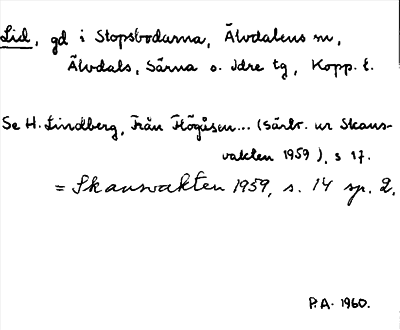 Lid, gd i Stopsbodarna, Älvdalens sn,
Älvdals, Särna o. Idre tg, Kopp. l.
Se H. Lindberg, Från Högåsen... (Särtr. ur Skans-
vakten 1959), s 17.
= Skansvakten 1959, s. 14 sp. 2.
P.A. 1960.